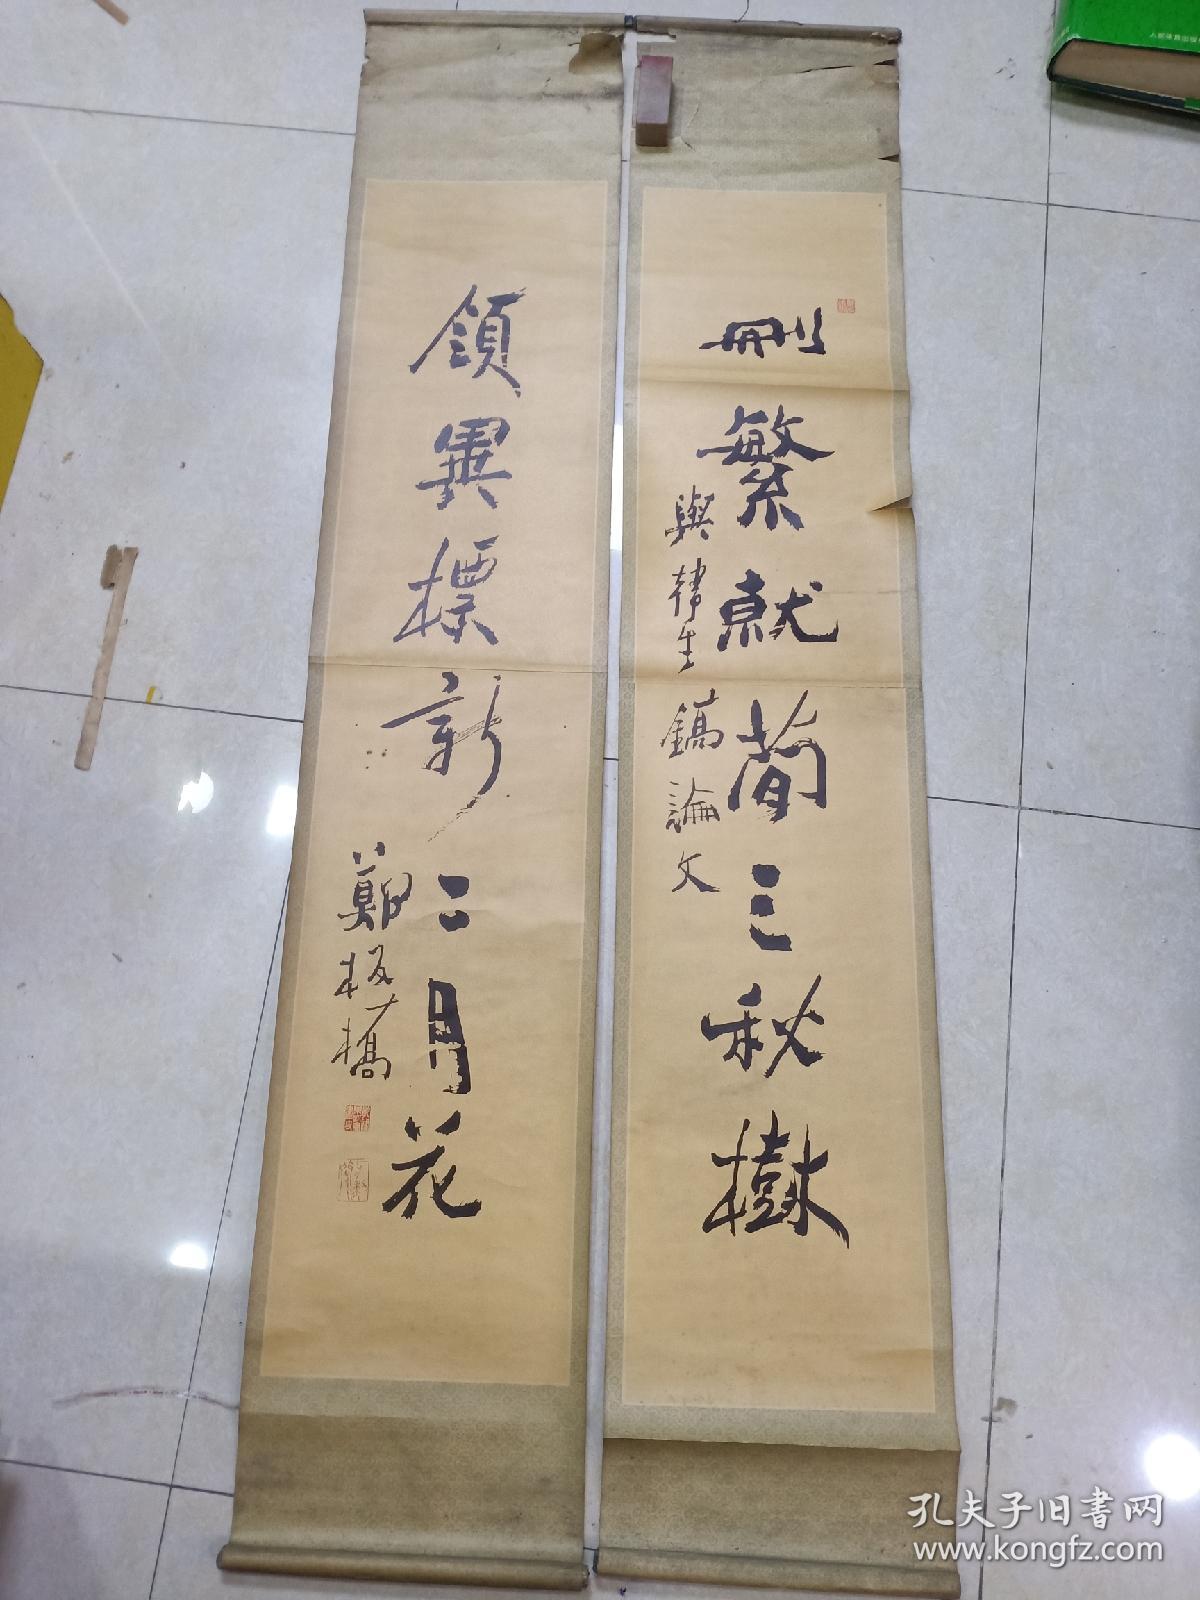 刪繁就簡三秋樹
與韓生鎬論文
領異標新二月花
鄭板橋
孔夫子旧书网
www.kongfz.com